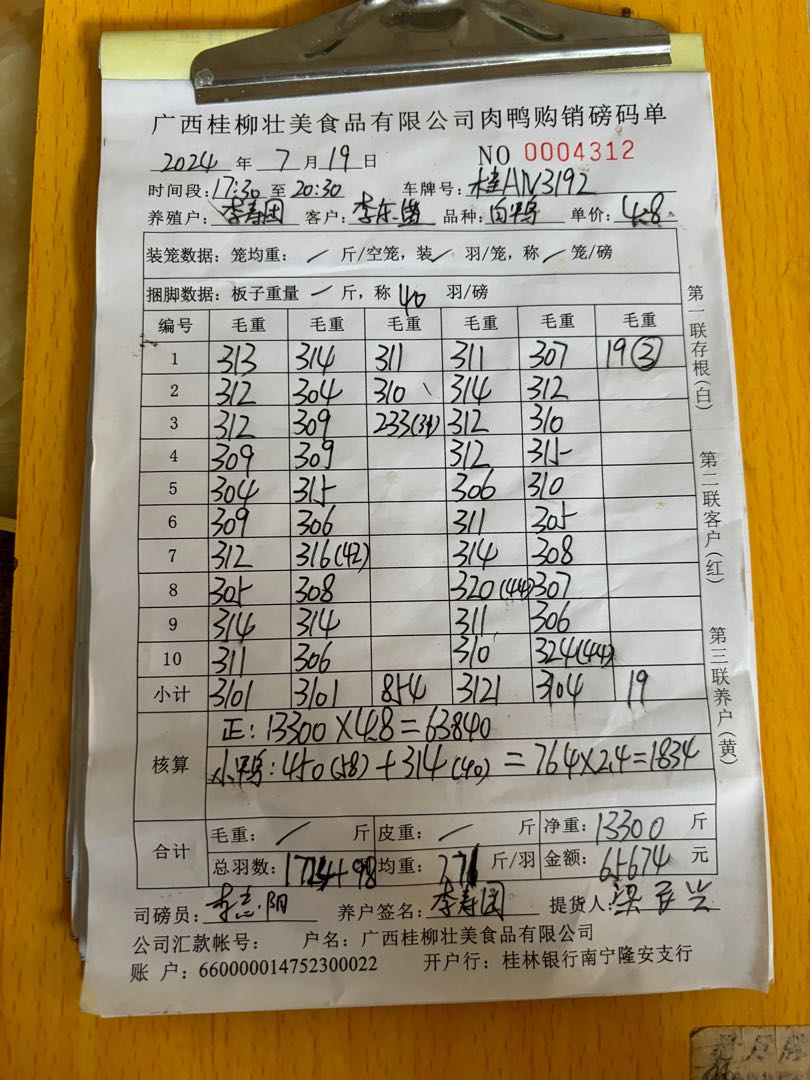 广西桂柳壮美食品有限公司肉鸭购销磅码单
2024 年 7 月 19 日 NO 0004312
时间段:17:30 至 20:30 车牌号:桂AN3192
养殖户:李寿团 客户: 品种:白鸭 单价:4.8
装笼数据:笼均重:/ 斤/空笼,装/ 羽/笼,称/ 笼/磅
捆脚数据:板子重量 / 斤,称 40 羽/磅
编号 毛重 毛重 毛重 毛重 毛重 毛重
1 313 314 311 311 307 19(3)
2 312 304 310 314 312
3 312 309 233(31) 312 310
4 309 309 312 315
5 304 315 306 310
6 309 306 311 305
7 312 316(42) 314 308
8 305 308 320(44) 307
9 314 314 311 306
10 311 306 310 324(44)
小计 3101 3101 854 3121 3104 19
核算
正:13300×4.8=63840
小鸭:450(58)+314(40)=764×2.4=1834
合计
毛重:/ 斤 皮重:/ 斤 净重:13300 斤
总羽数:1724+98 均重:7.71 斤/羽 金额:65674 元
司磅员:李志阳 养户签名:李寿团 提货人:
公司汇款帐号: 户名:广西桂柳壮美食品有限公司
账 户:660000014752300022 开户行:桂林银行南宁隆安支行
第一联存根(白)
第二联客户(红)
第三联养户(黄)